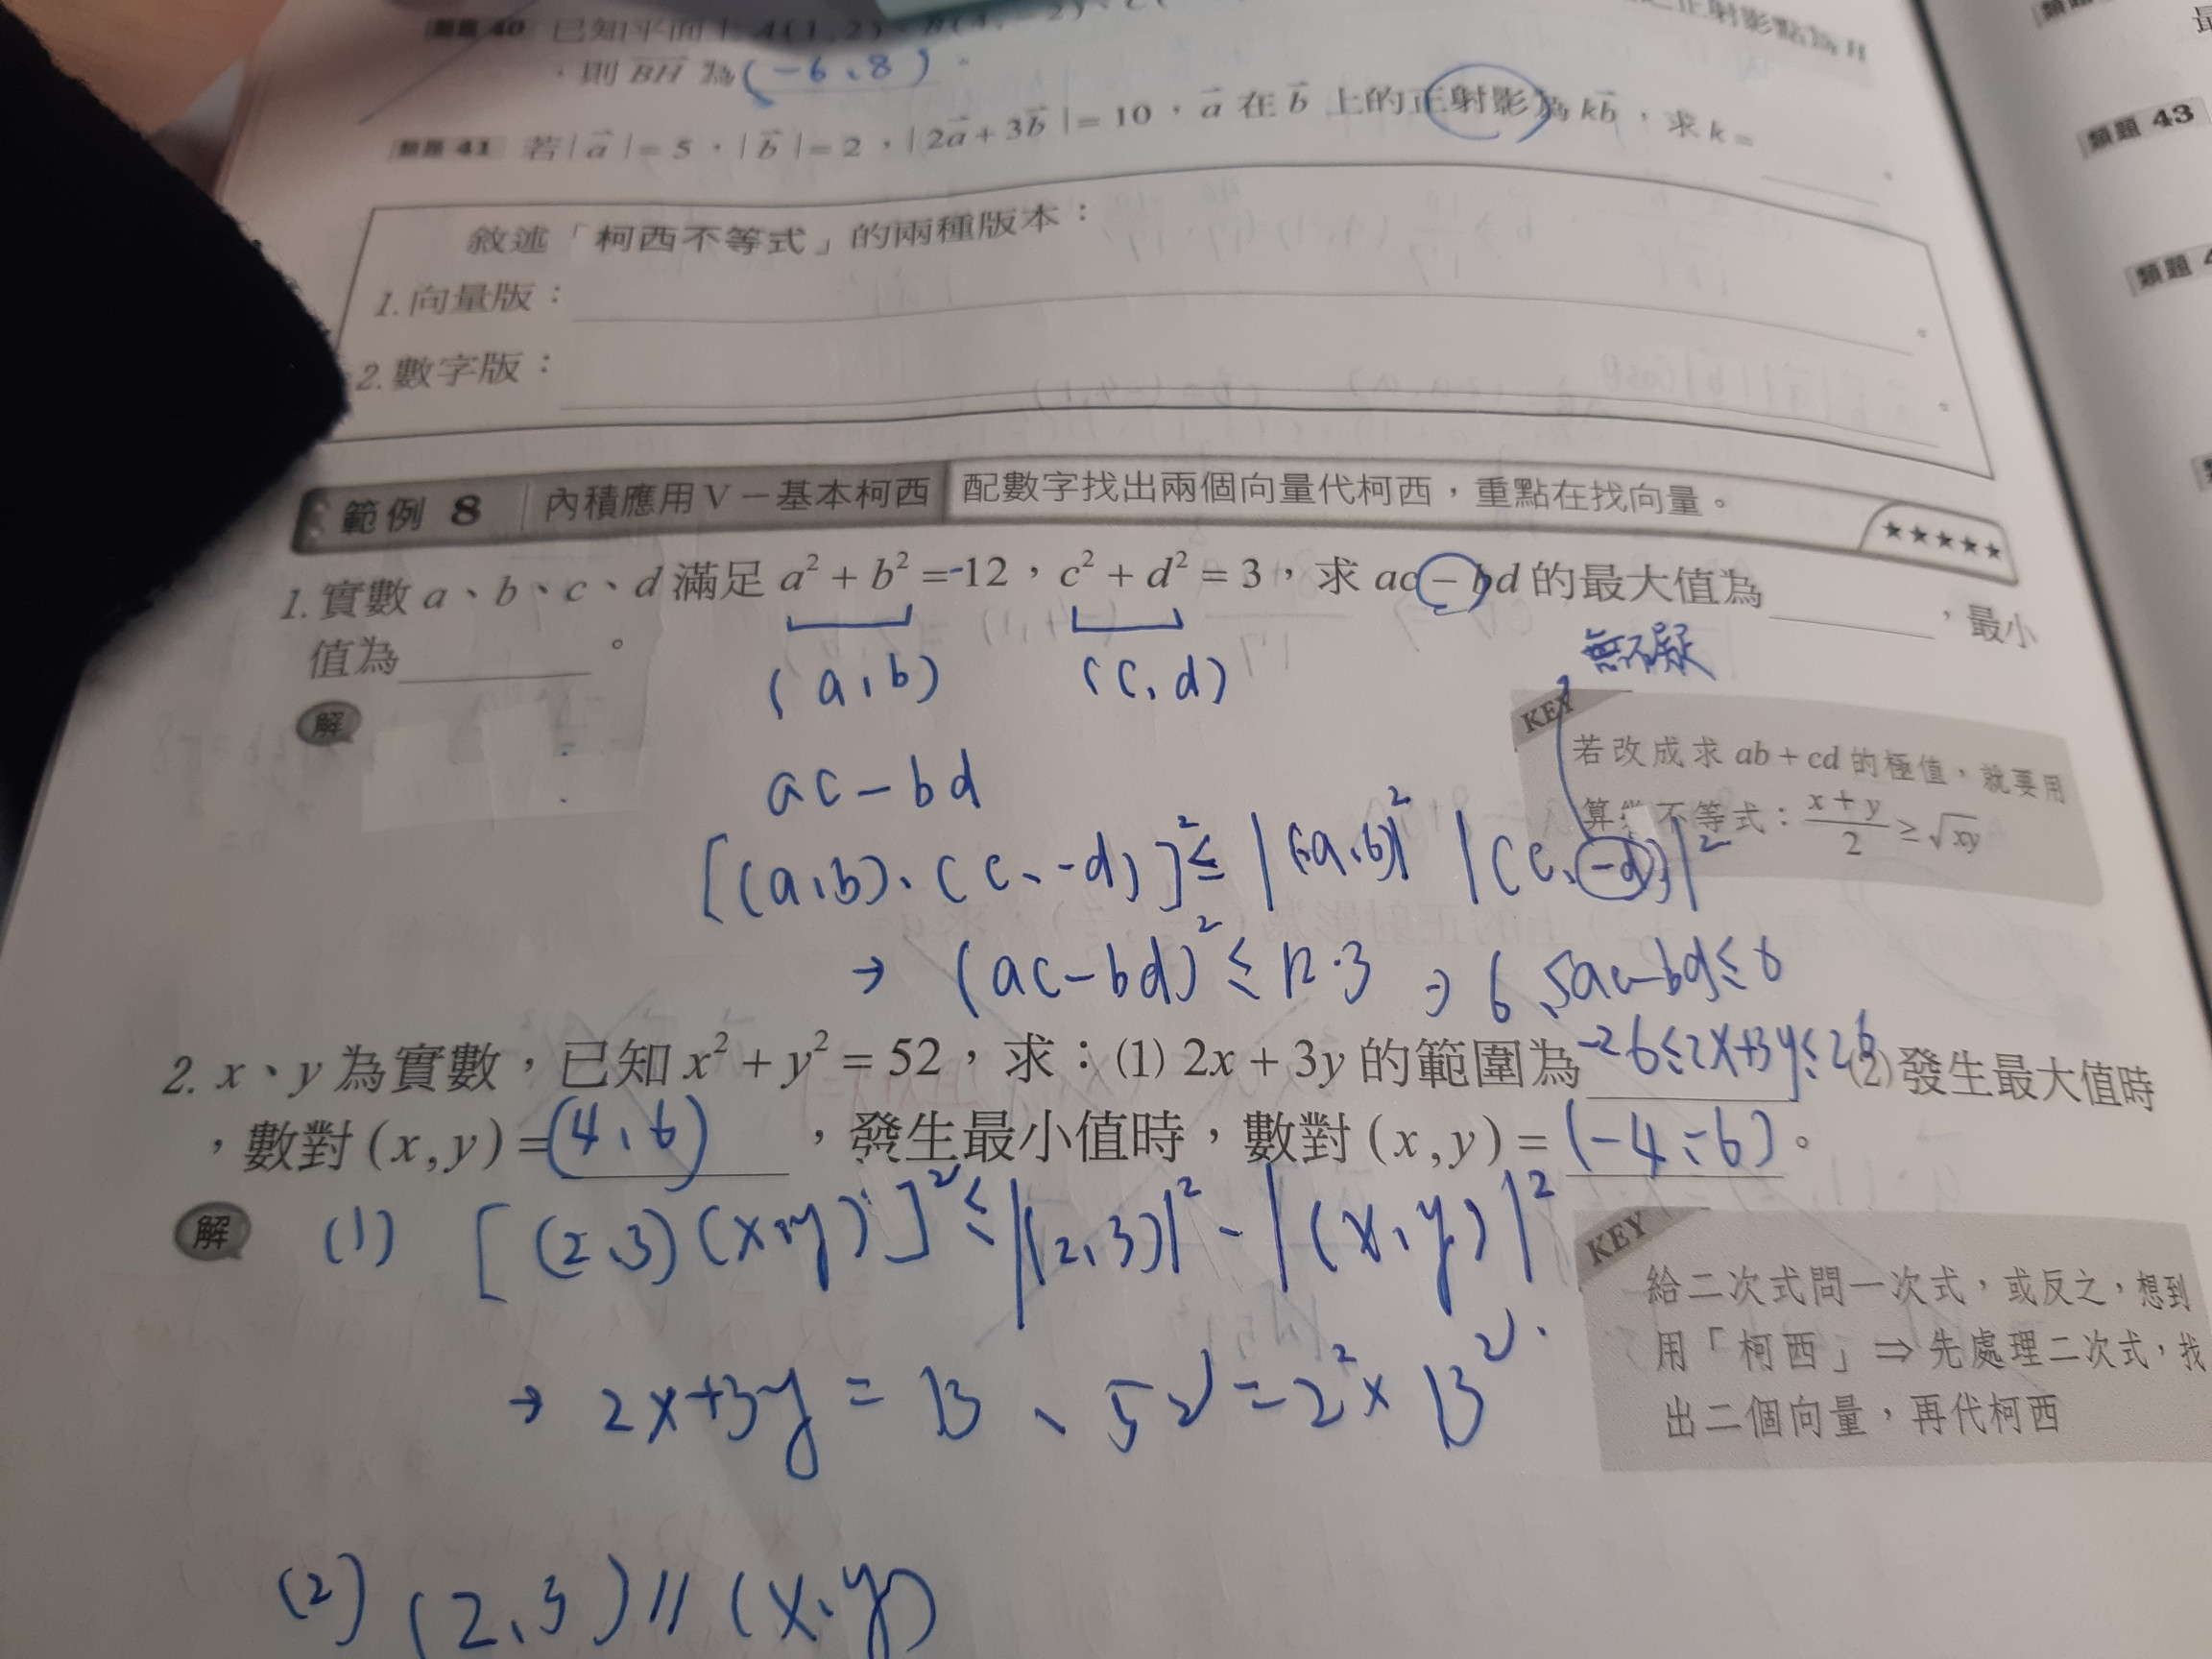 類題 40 已知平面上 A(1,2)、B(4,-2)、C(
之正射影點為 H
,則 BH 為(-6、8)。
類題 41 若|a⃗|=5,|b⃗|=2,|2a⃗+3b⃗|=10,a⃗ 在 b⃗ 上的正射影為 kb⃗,求 k= 。
敘述「柯西不等式」的兩種版本:
1.向量版: 。
2.數字版: 。
範例 8 內積應用 V-基本柯西 配數字找出兩個向量代柯西,重點在找向量。 ★★★★★
1.實數 a、b、c、d 滿足 a²+b²=-12,c²+d²=3,求 ac-bd 的最大值為 ,最小
值為 。
(a,b) (c,d)
解
ac-bd
KEY
若改成求 ab+cd 的極值,就要用
不等式:(x+y)/2 ≥ √xy
[(a,b)·(c、-d)]² ≤ |(a,b)|² |(c,-d)|²
→ (ac-bd)² ≤ 12·3 → 6 ≤ac-bd≤6
2. x、y 為實數,已知 x²+y²=52,求:(1) 2x+3y 的範圍為 -26≤2x+3y≤26 (2)發生最大值時
,數對 (x,y)=(4,6) ,發生最小值時,數對 (x,y)=(-4,-6)。
解 (1) [(2,3)(x,y)]² ≤ |(2,3)|² - |(x,y)|²
→ 2x+3y = 13、52=2²x13².
KEY
給二次式問一次式,或反之,想到
用「柯西」⇒先處理二次式,找
出二個向量,再代柯西
(2) (2,3)//(x,y)
類題 43
類題 4